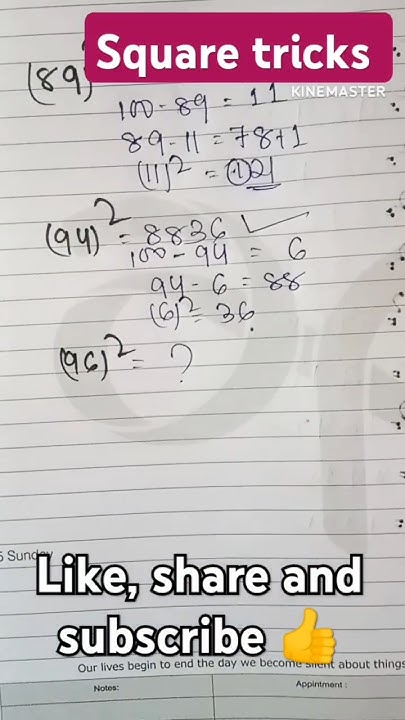 Square tricks
KINEMASTER
(89)
100 - 89 = 11
89 - 11 = 78+1
(11)² = ①21
(94)² = 8836 ✓
100 - 94 = 6
94 - 6 = 88
(6)² = 36
(96)² = ?
Sunday
Like, share and
subscribe 👍
Our lives begin to end the day we become silent about things
Notes:
Appintment :